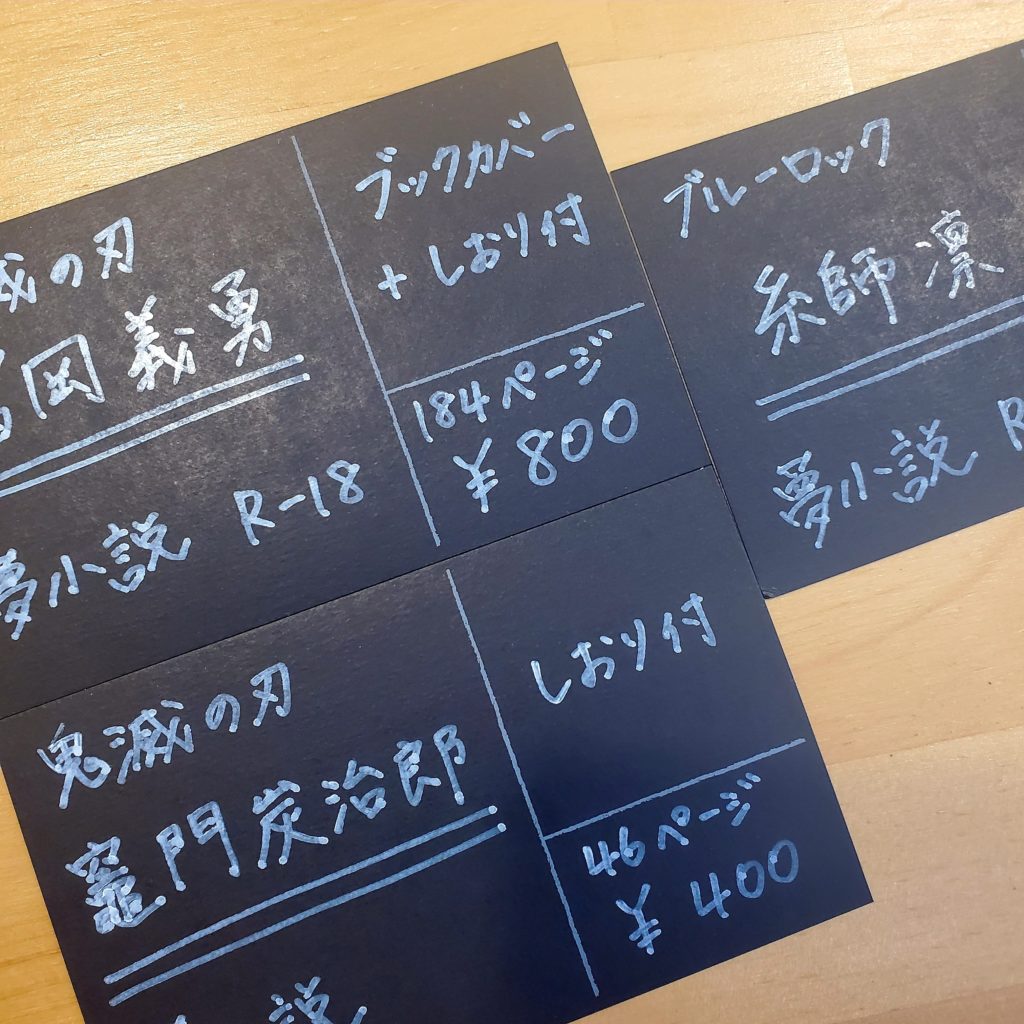 滅の刃
冨岡義勇
夢小説 R-18
ブックカバー
+しおり付
184ページ
¥800
ブルーロック
糸師凛
夢小説 R
鬼滅の刃
竈門炭治郎
小説
しおり付
46ページ
¥400